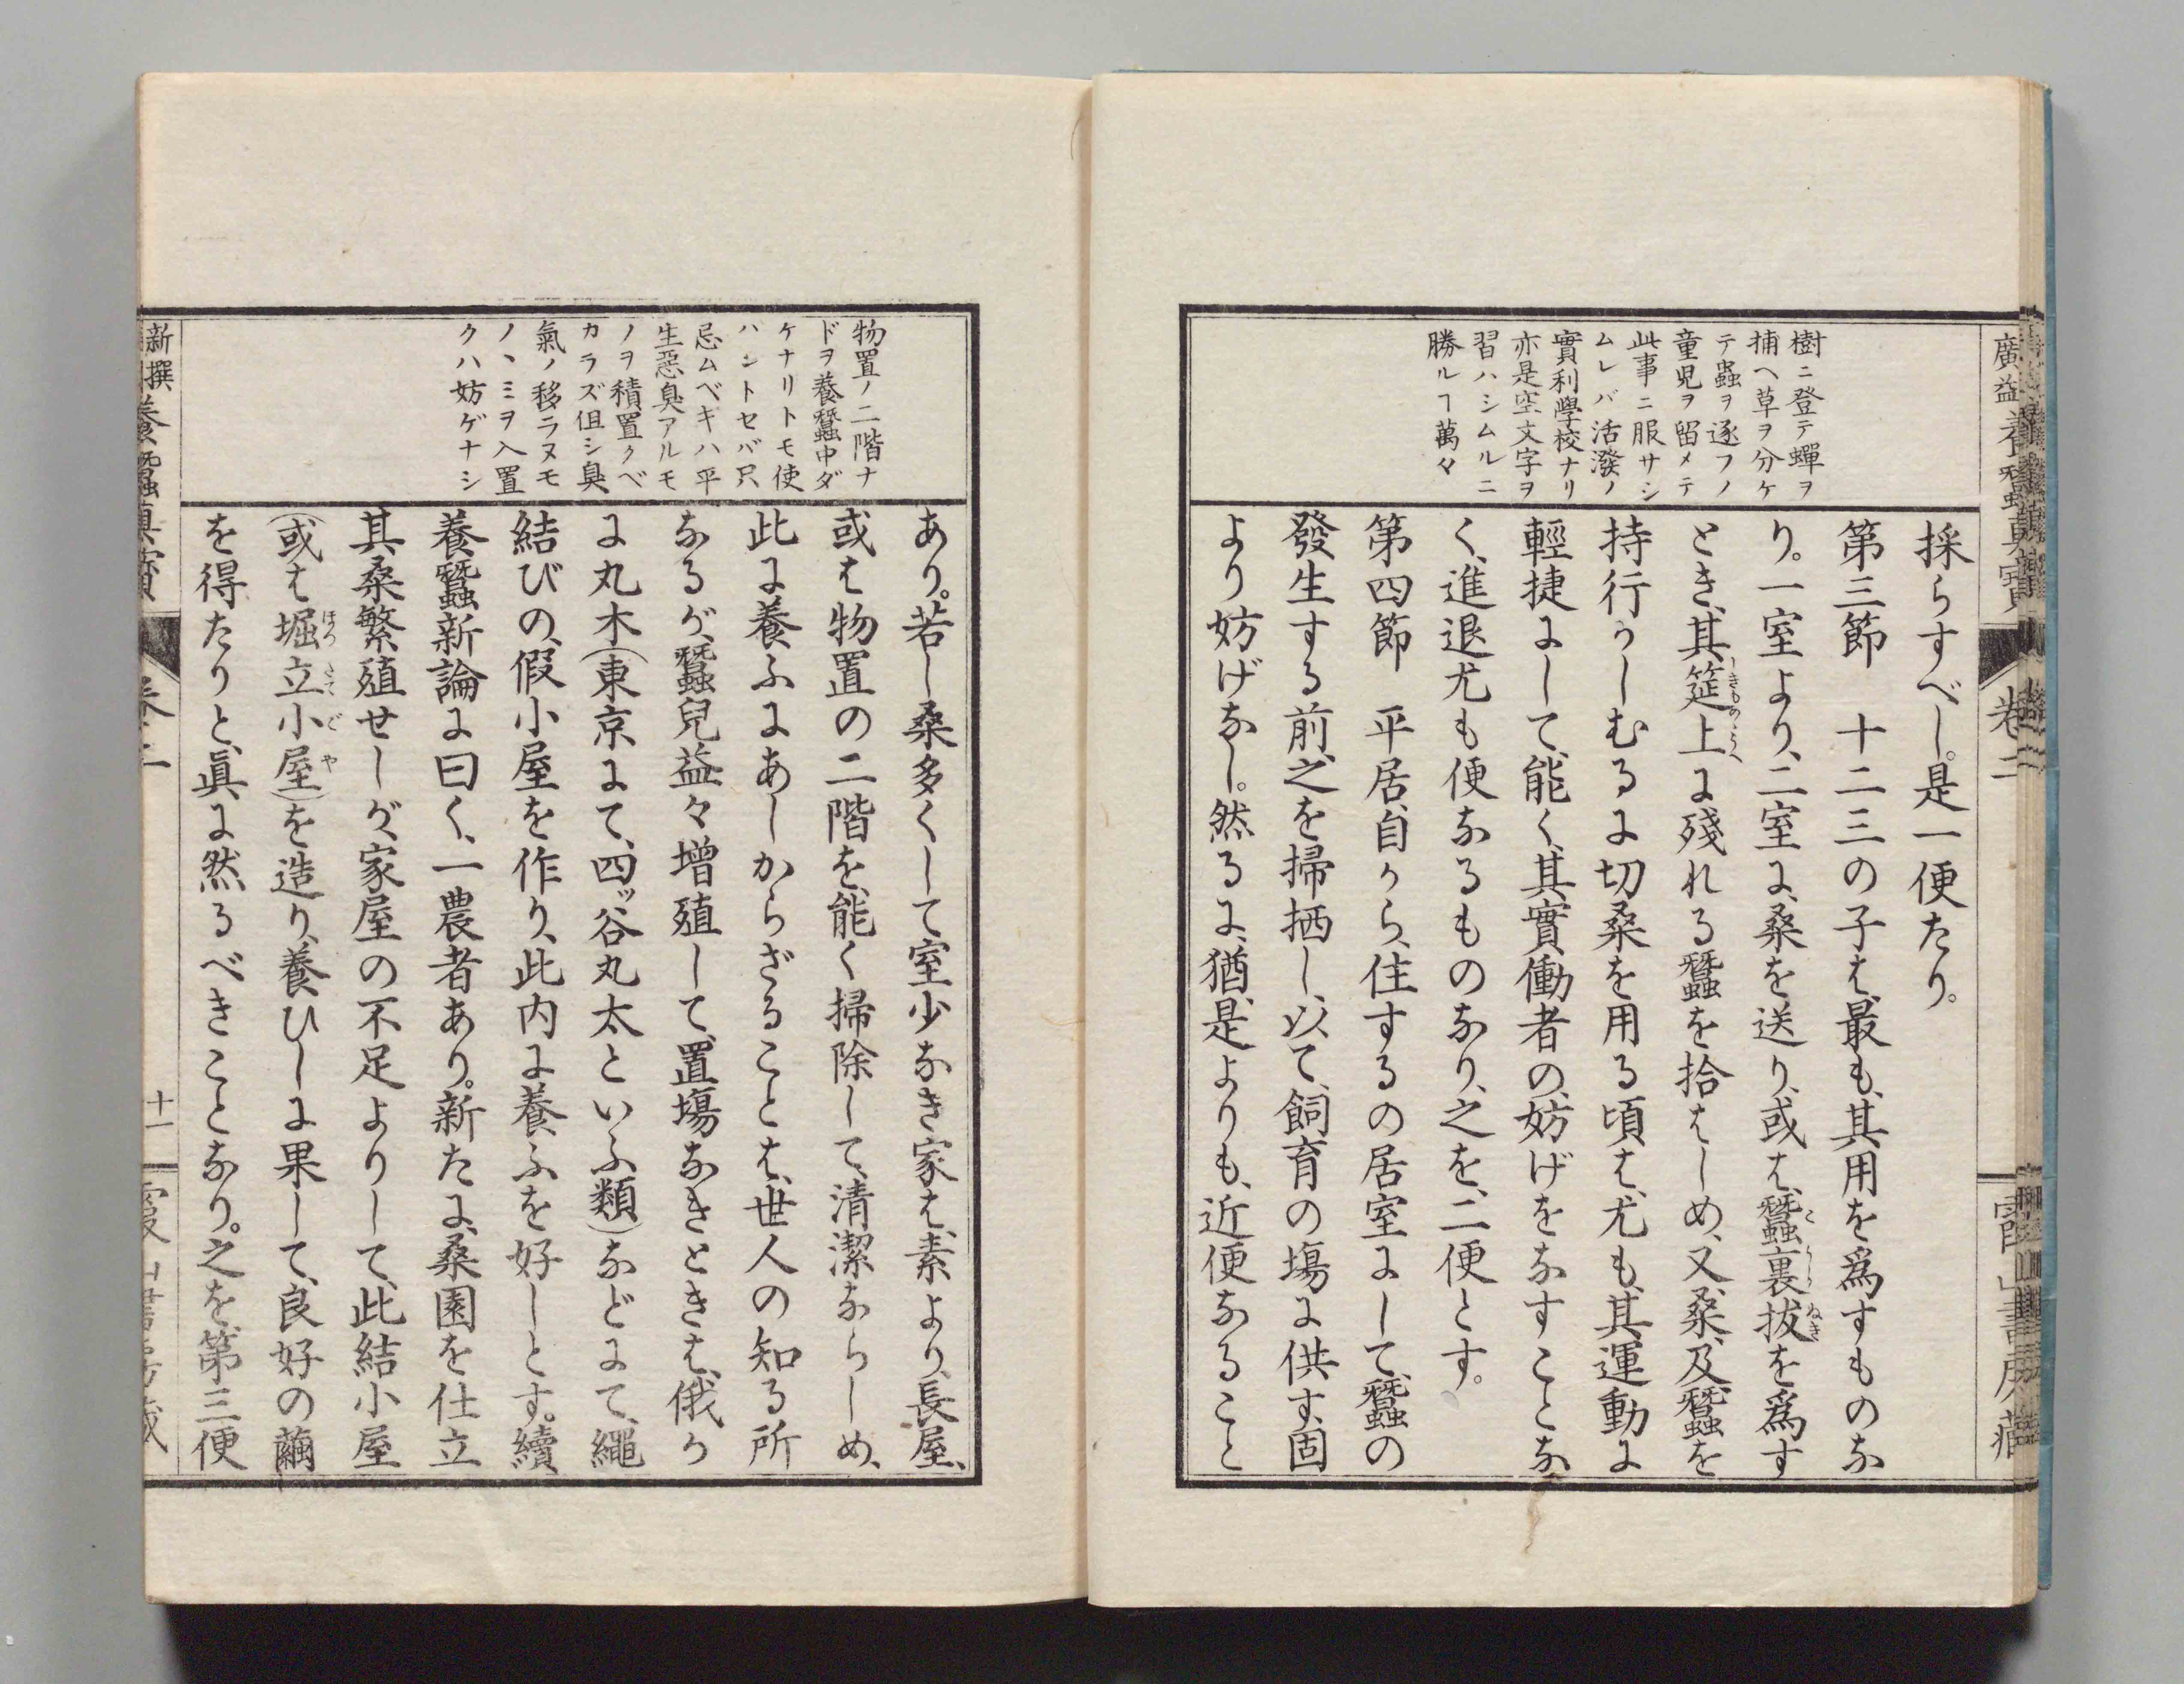 樹ニ登テ蟬ヲ
捕ヘ草ヲ分ケ
テ蟲ヲ逐フノ
童児ヲ留メテ
此事ニ服サシ
ムレバ活潑ノ
實利學校ナリ
亦是空文字ヲ
習ハシムルニ
勝ルヿ萬々
採らすべし。是一便たり。
第三節　十二三の子は、最も、其用を爲すものな
り。一室より、二室に、桑を送り、或は、蠶裏拔を爲す
とき、其筵上に殘れる蠶を拾はしめ、又、桑、及蠶を
持行かしむるに切桑を用る頃は、尤も、其運動に
輕捷にして、能く、其實働者の、妨げをなすことな
く、進退尤も便なるものなり、之を、二便とす。
第四節　平居、自から、住するの居室にして、蠶の
發生する前、之を掃晒し、以て、飼育の塲に供す、固
より妨げなし。然るに、猶、是よりも、近便なること
物置ノ二階ナ
ドヲ養蠶中ダ
ケナリトモ使
ハントセバ只
忌ムベキハ平
生惡臭アルモ
ノヲ積置クベ
カラズ但シ臭
氣ノ移ラヌモ
ノヽミヲ入置
クハ妨ゲナシ
あり。若し桑多くして室少なき家は、素より、長屋、
或は物置の二階を、能く掃除して、清潔ならしめ、
此に養ふにあしからざることは、世人の知る所
なるが、蠶兒益々増殖して、置塲なきときは、俄か
に丸木（東京にて、四ッ谷丸太といふ類）などにて、繩
結びの、假小屋を作り、此内に養ふを好しとす。續
養蠶新論に曰く、一農者あり。新たに、桑園を仕立
其桑繁殖せしが、家屋の不足よりして、此結小屋
（或は堀立小屋）を造り、養ひしに果して、良好の繭
を得たりと、眞に然るべきことなり。之を、第三便
新撰養蠶眞寶　卷二　十一
廣益養蠶眞寶　卷二